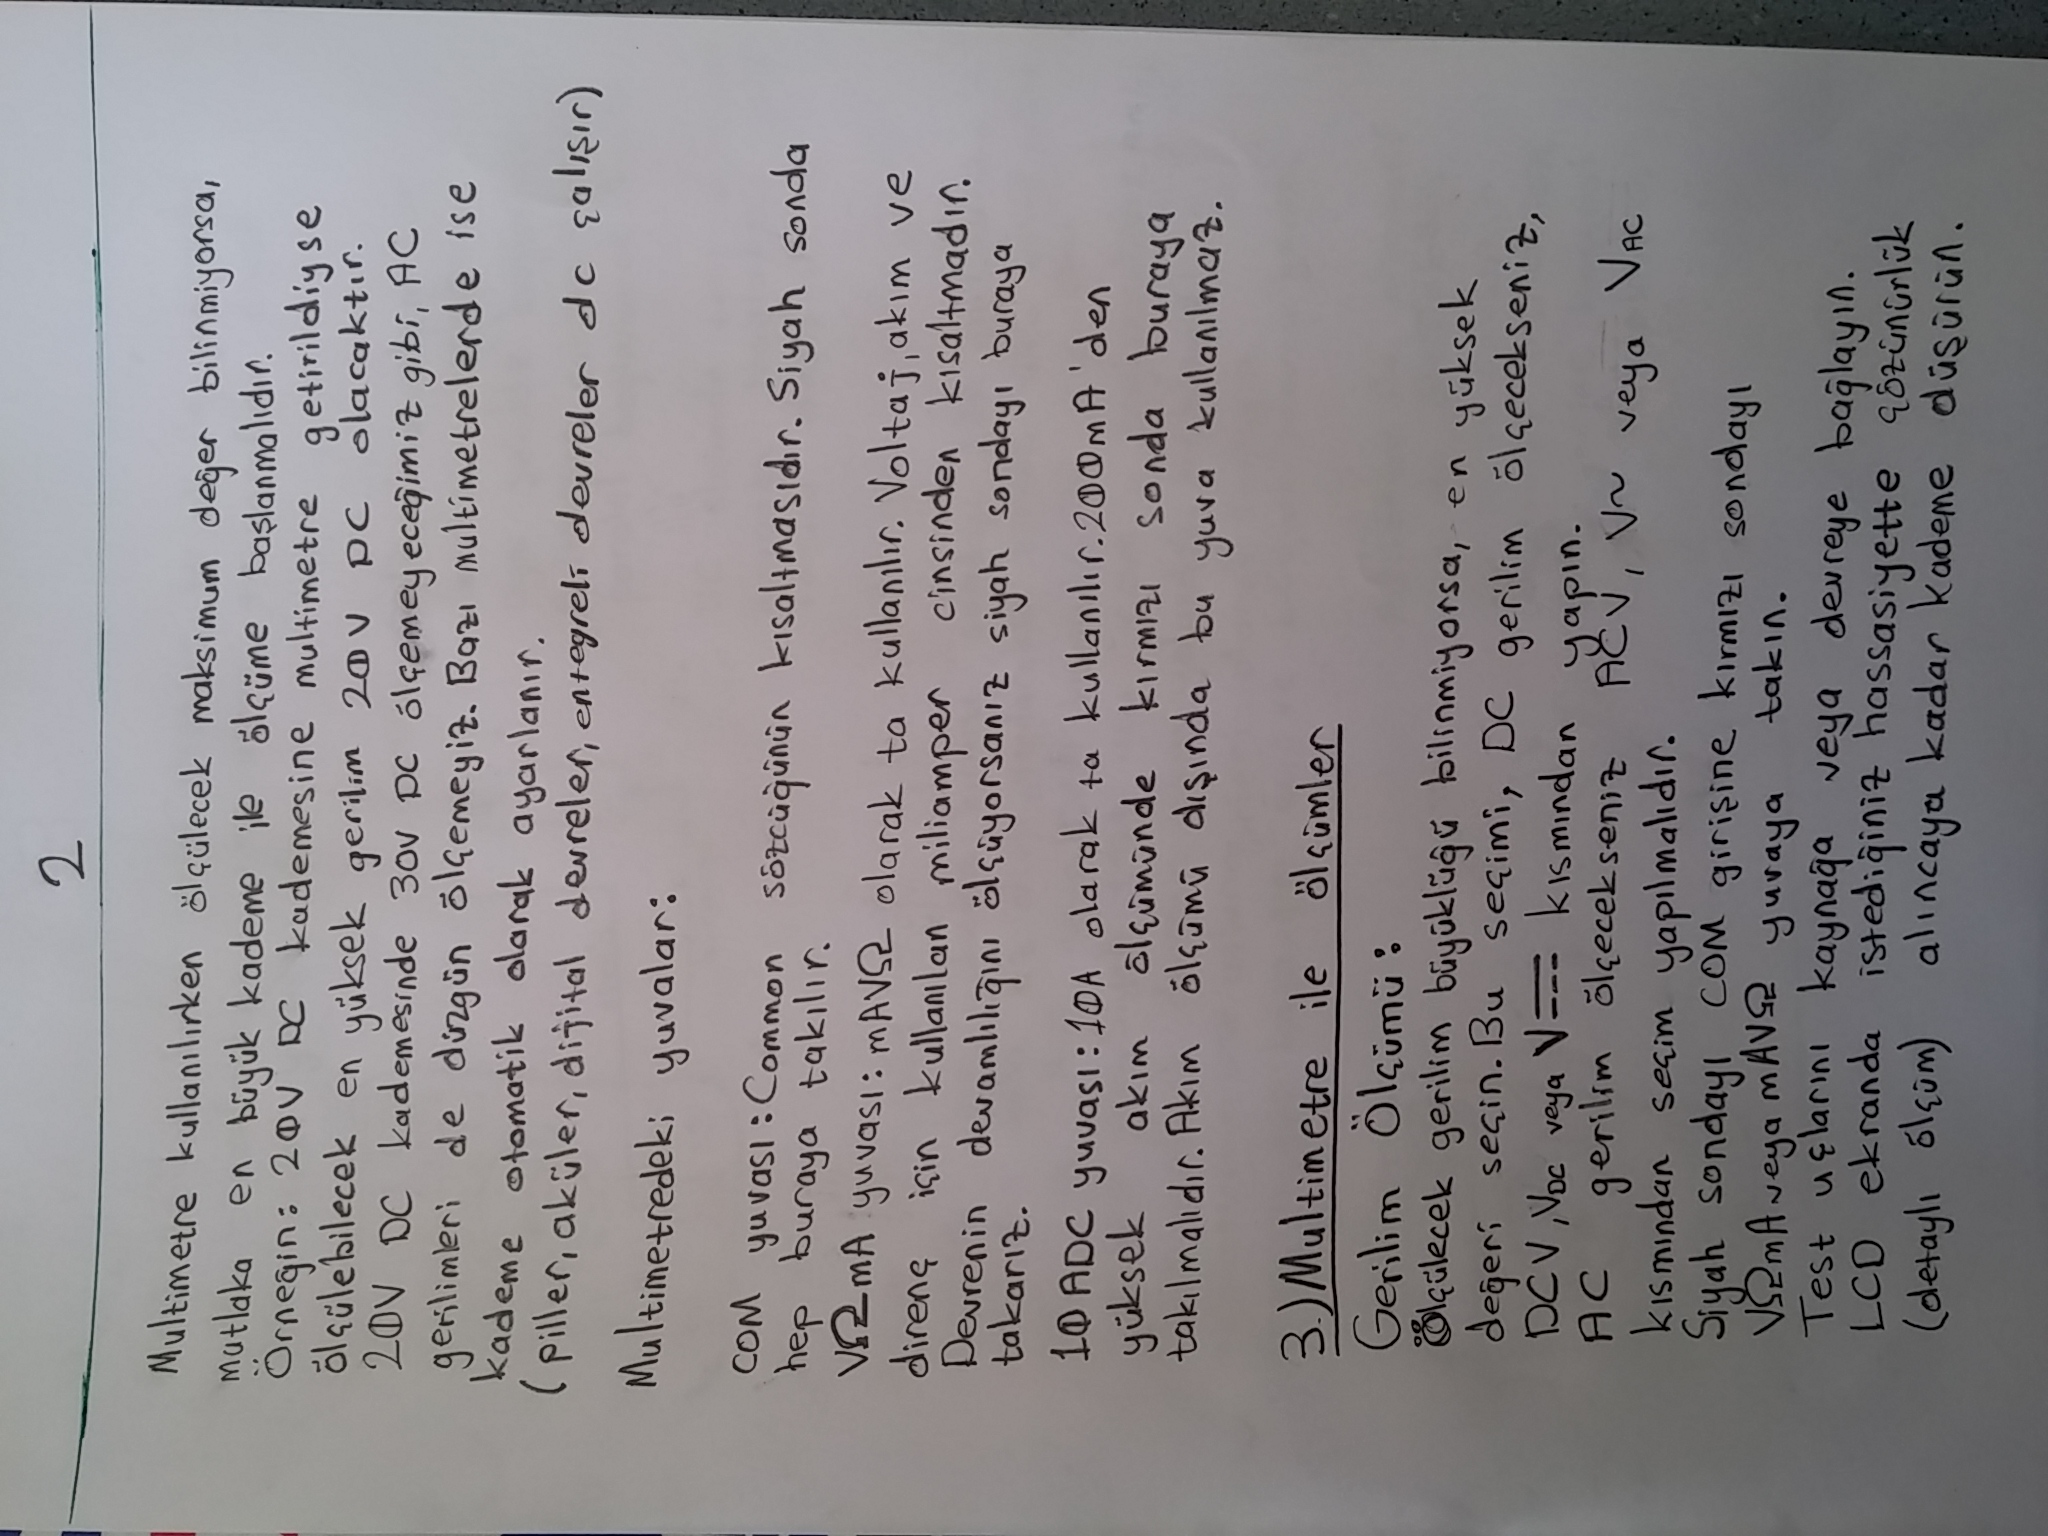 2
Multimetre kullanılırken ölçülecek maksimum değer bilinmiyorsa,
mutlaka en büyük kademe ile ölçüme başlanmalıdır.
Örneğin: 20V DC kademesine multimetre getirildiyse
ölçülebilecek en yüksek gerilim 20V DC olacaktır.
20V DC kademesinde 30V DC ölçemeyeceğimiz gibi, AC
gerilimleri de düzgün ölçemeyiz. Bazı multimetrelerde ise
kademe otomatik olarak ayarlanır.
(piller, aküler, dijital devreler, entegreli devreler dc çalışır)
Multimetredeki yuvalar:
COM yuvası: Common sözcüğünün kısaltmasıdır. Siyah sonda
hep buraya takılır.
VΩmA yuvası: mAVΩ olarak ta kullanılır. Voltaj, akım ve
direnç için kullanılan miliamper cinsinden kısaltmadır.
Devrenin devamlılığını ölçüyorsanız siyah sondayı buraya
takarız.
10ADC yuvası: 10A olarak ta kullanılır. 200mA'den
yüksek akım ölçümünde kırmızı sonda buraya
takılmalıdır. Akım ölçümü dışında bu yuva kullanılmaz.
3.) Multimetre ile ölçümler
Gerilim Ölçümü:
Ölçülecek gerilim büyüklüğü bilinmiyorsa, en yüksek
değeri seçin. Bu seçimi, DC gerilim ölçecekseniz,
DCV, VDC veya V⎓ kısmından yapın.
AC gerilim ölçecekseniz ACV, V~ veya VAC
kısmından seçim yapılmalıdır.
Siyah sondayı COM girişine kırmızı sondayı
VΩmA veya mAVΩ yuvaya takın.
Test uçlarını kaynağa veya devreye bağlayın.
LCD ekranda istediğiniz hassasiyette çözünürlük
(detaylı ölçüm) alıncaya kadar kademe düşürün.